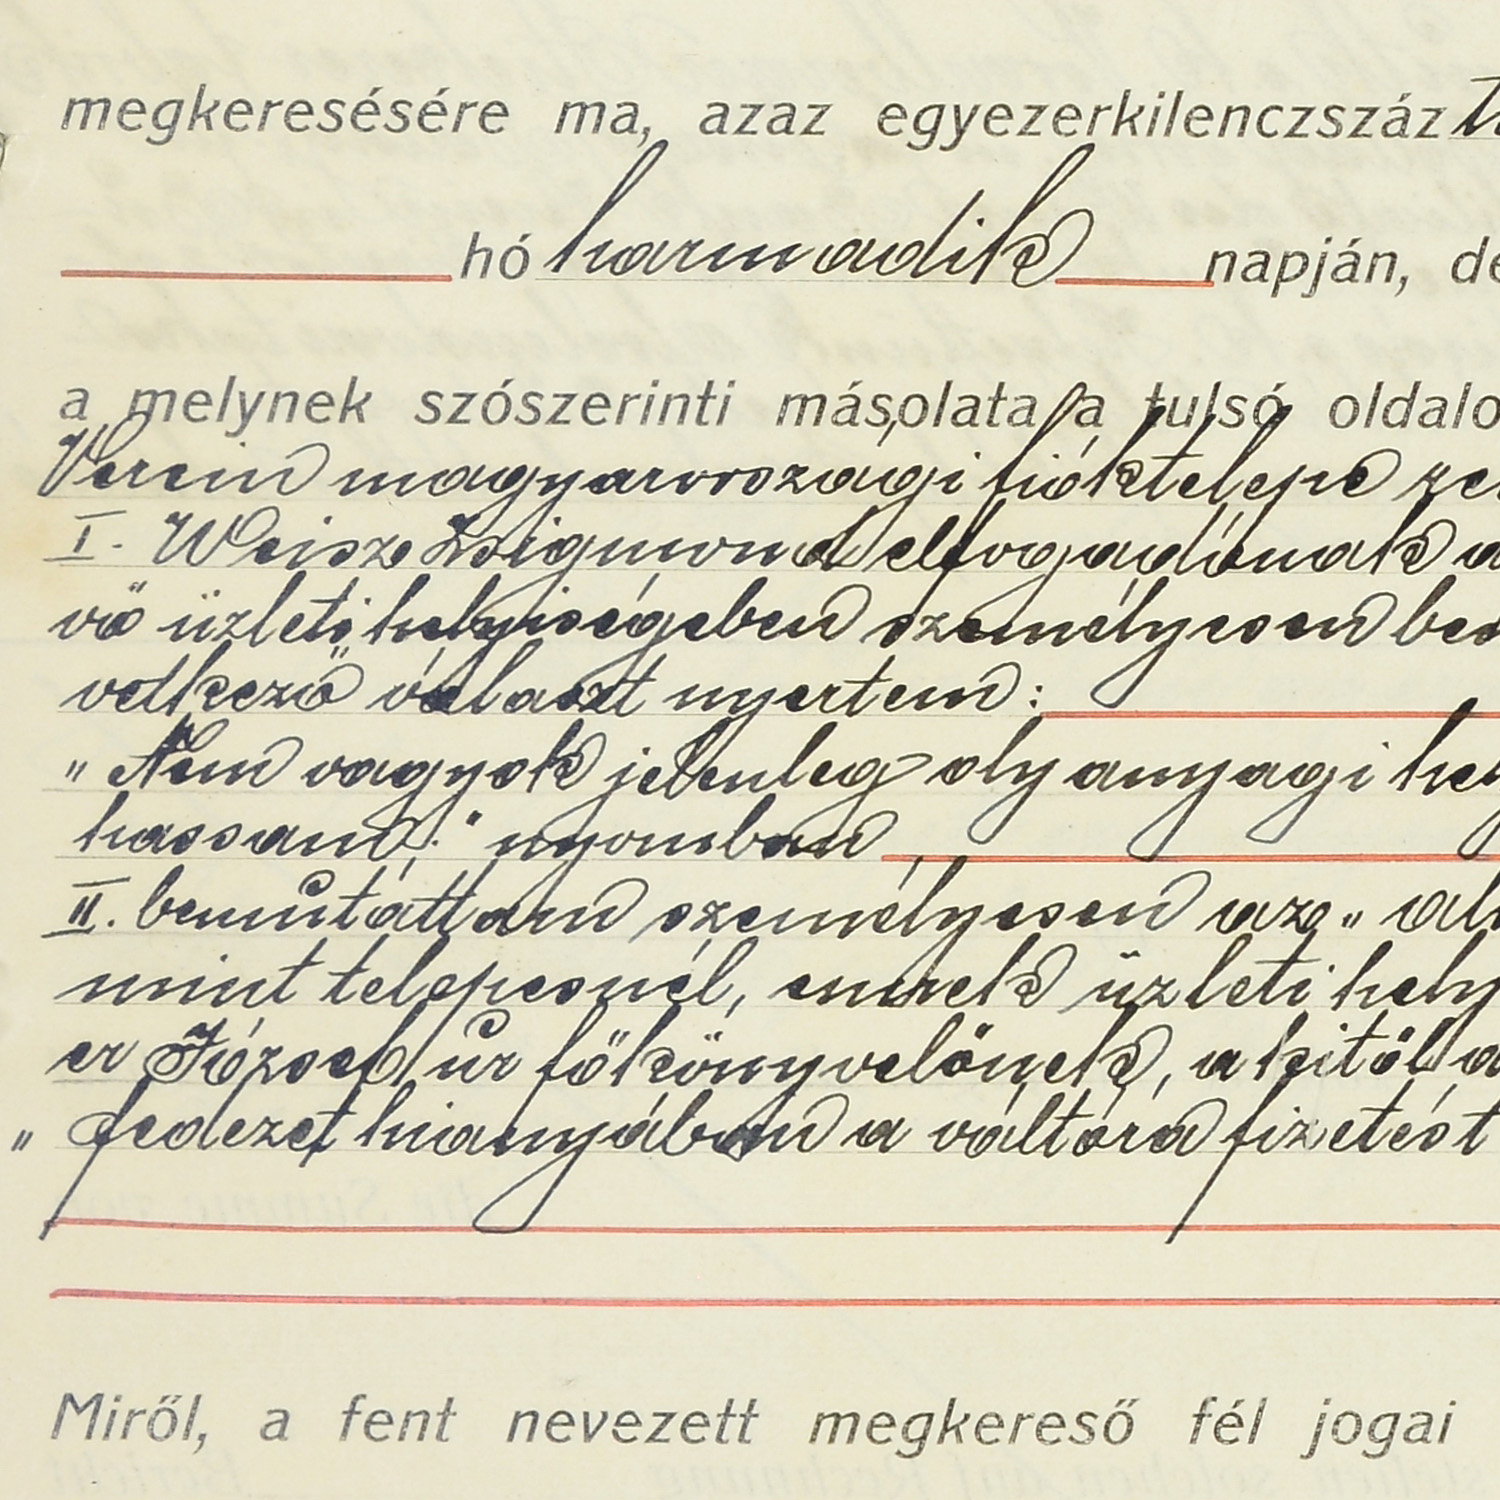 megkeresésére ma, azaz egyezerkilenczszáz
hó harmadik napján, de
a melynek szószerinti másolata a tulsó oldalo
Verein magyarországi fióktelepe
I. Weisz Zsigmond elfogadónak a
vő üzleti helyiségeben személyesen be
vetkező választ nyertem:
„Nem vagyok jelenleg oly anyagi hely
hassam!" nyomban
II. bemutattam személyesen az „
mint telepesnél, ennek üzleti hely
er József úr főkönyvelőnek, a kitől a
„fedezet hianyában a váltóra fizetést
Miről, a fent nevezett megkereső fél jogai